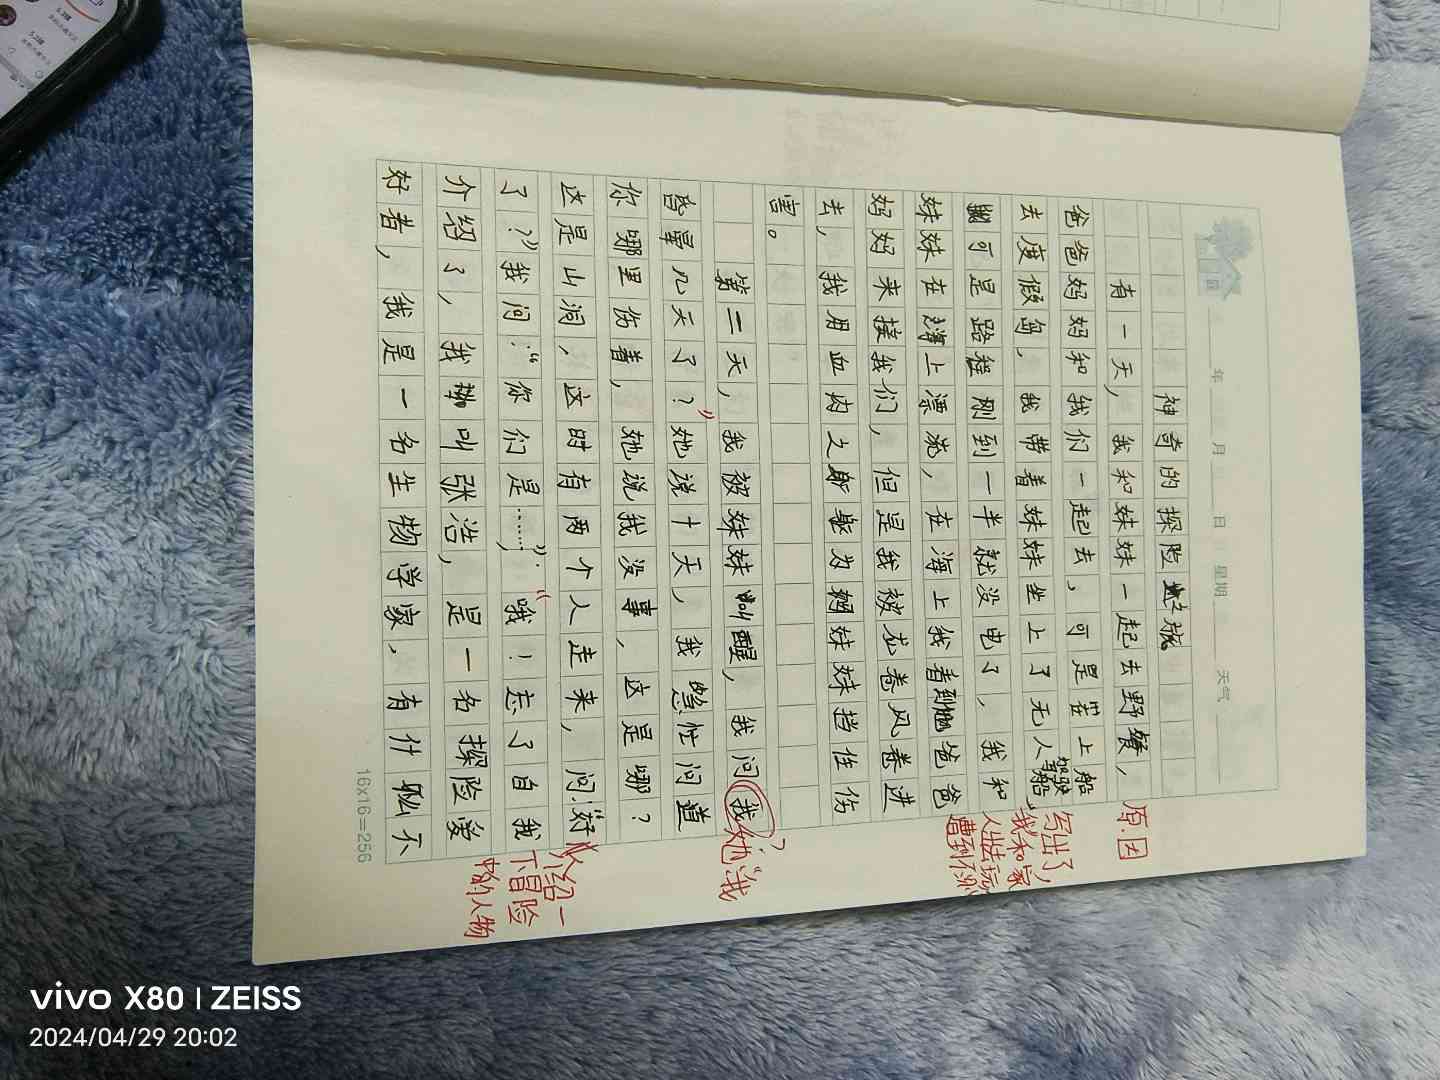 年 月 日 星期 天气
神奇的探险之旅
有一天，我和妹妹一起去野餐，
爸爸妈妈和我们一起去，可是在上船
去度假岛，我带着妹妹坐上了无人驾驶船，
可是路程刚到一半就没电了，我和
妹妹在海上漂流，在海上我看到爸爸
妈妈来接我们，但是我被龙卷风卷进
去，我用血肉之躯为妹妹挡住伤
害。
第二天，我被妹妹叫醒，我问我
昏晕几天了？”她说十天，我性问道
你哪里伤着，她说我没事，这是哪？
这是山洞，这时有两个人走来，问：“好
了？”我问：“你们是……”“哦！忘了自我
介绍了，我叫张浩，是一名探险爱
好者，我是一名生物学家，有什么不
16×16=256
原因
写出了，
我和家
人出去玩
遭到不测
她“我
介绍一
下冒险
中的人物
vivo X80 | ZEISS
2024/04/29 20:02